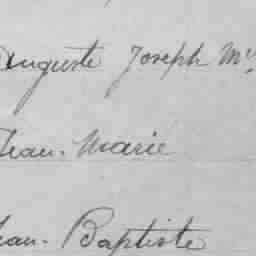 Auguste Joseph Mie
Jean-Marie
Jean-Baptiste